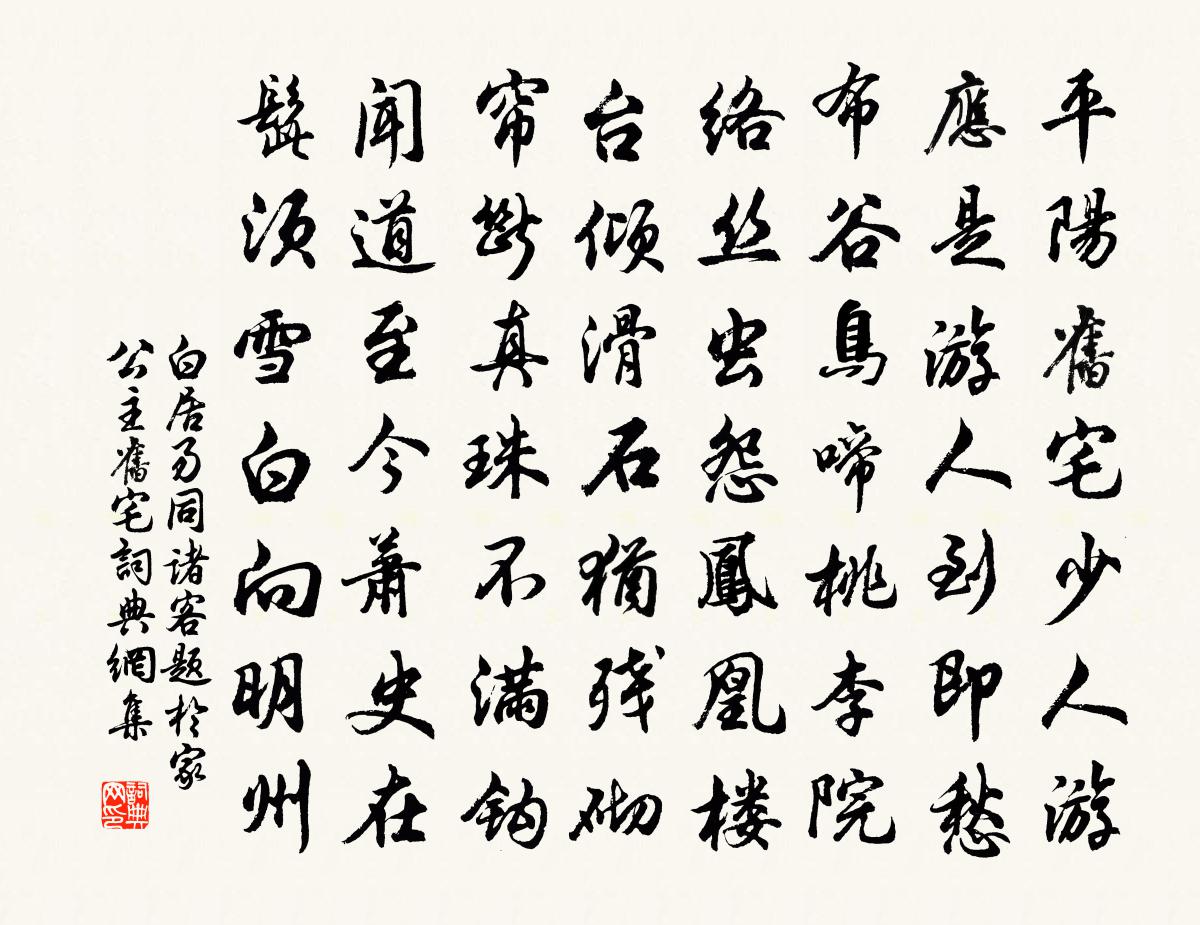 平陽舊宅少人游
應是游人到即愁
布谷鳥啼桃李院
络丝虫怨鳳凰楼
台倾滑石猶残砌
帘斷真珠不满鈎
闻道至今萧史在
髭须雪白向明州
白居易同诸客题於家
公主舊宅詞典網集
詞典网印